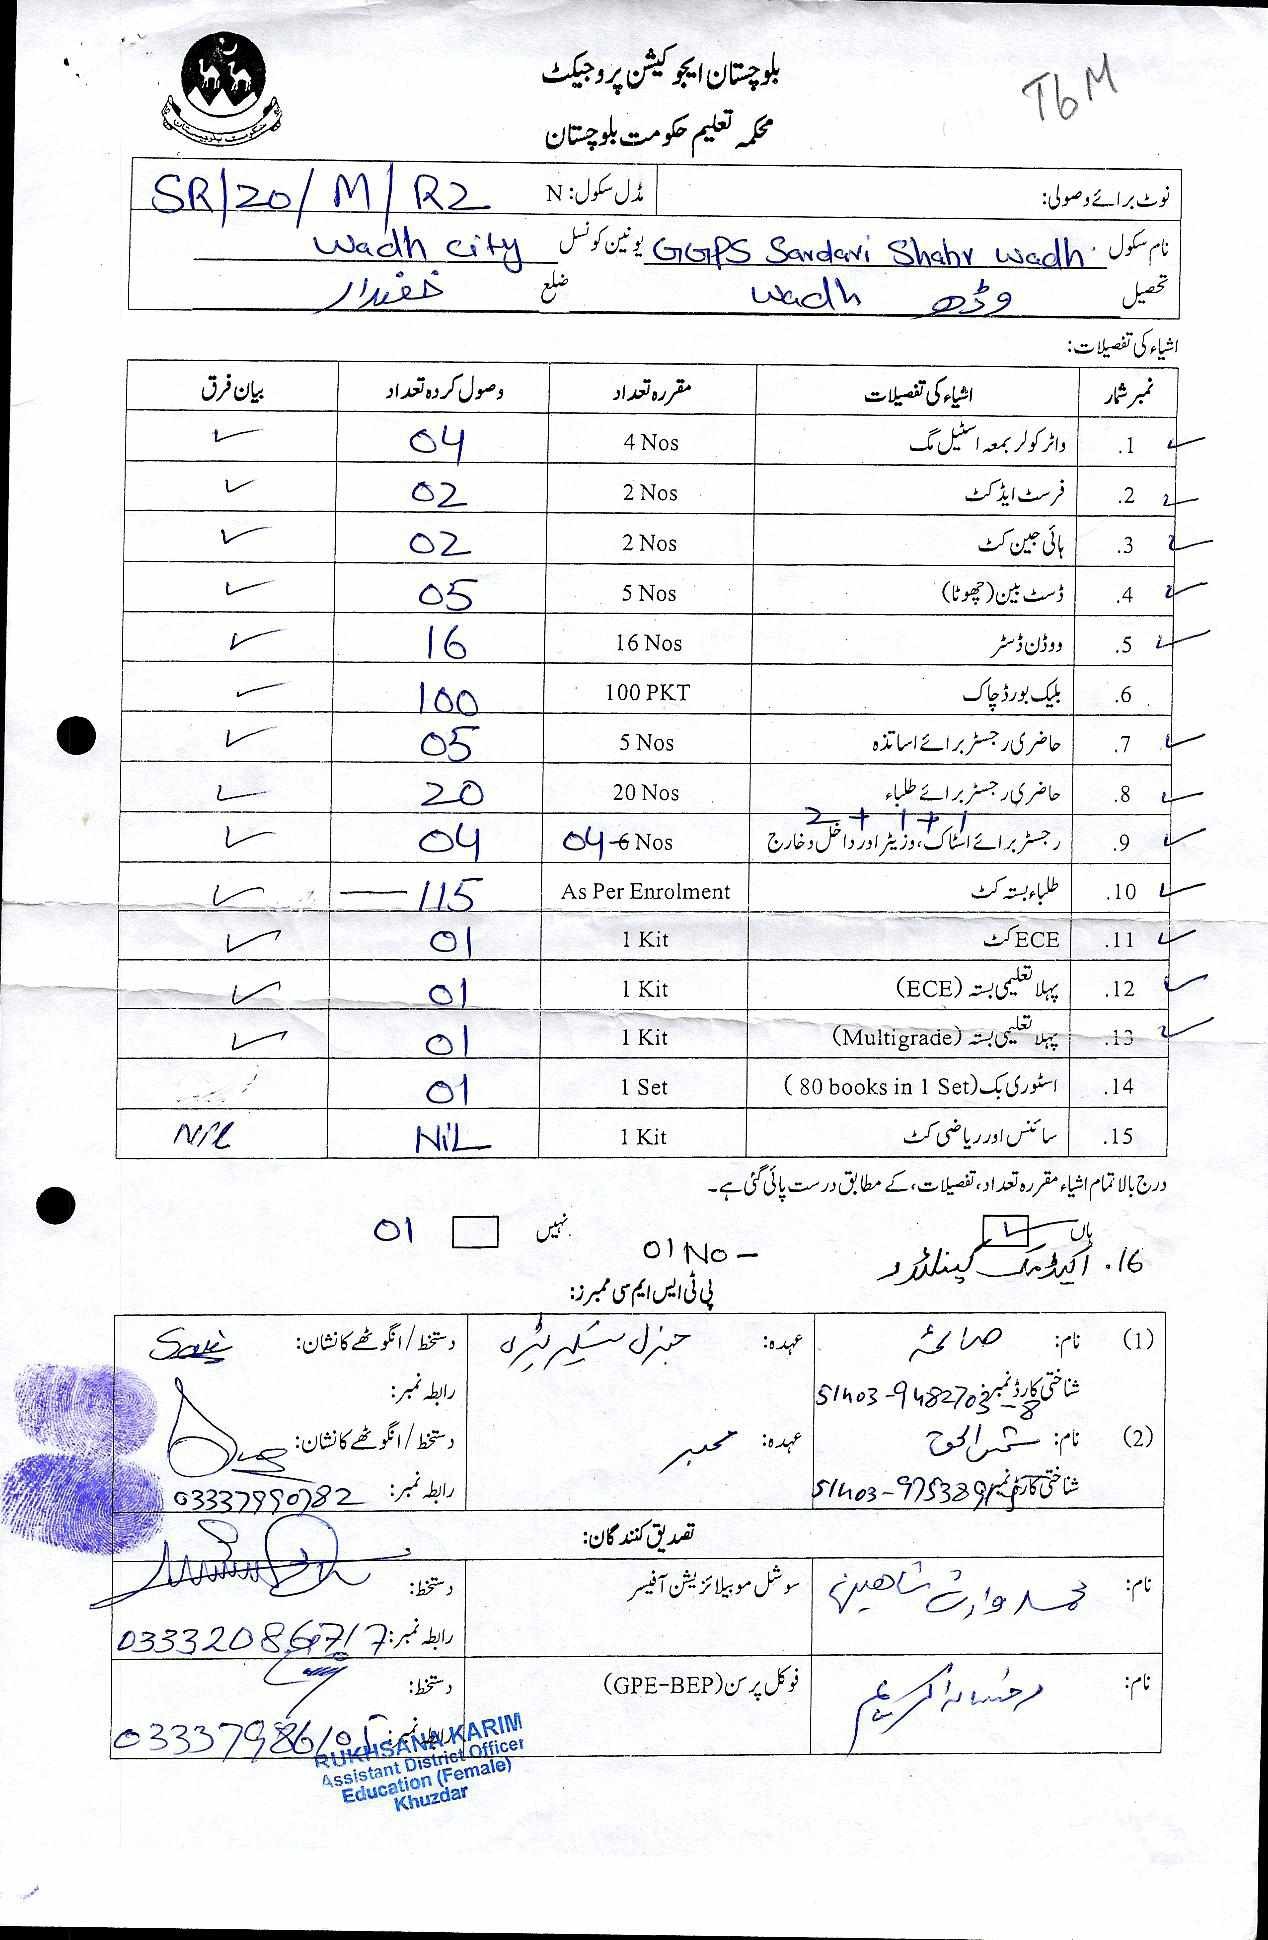 TGM
بلوچستان ایجوکیشن پروجیکٹ
محکمہ تعلیم حکومت بلوچستان
نوٹ برائے وصولی: مڈل سکول: N SR/20/M/R2
نام سکول GGPS Sardari Shahr Wadh یونین کونسل Wadh City
تحصیل وڈھ Wadh ضلع خضدار
اشیاء کی تفصیلات:
نمبر شمار اشیاء کی تفصیلات مقررہ تعداد وصول کردہ تعداد بیان فرق
1. واٹر کولر بمعہ اسٹیل مگ 4 Nos 04 ✓
2. فرسٹ ایڈ کٹ 2 Nos 02 ✓
3. ہائی جین کٹ 2 Nos 02 ✓
4. ڈسٹ بین (چھوٹا) 5 Nos 05 ✓
5. ووڈن ڈسٹر 16 Nos 16 ✓
6. بلیک بورڈ چاک 100 PKT 100 ✓
7. حاضری رجسٹر برائے اساتذہ 5 Nos 05 ✓
8. حاضری رجسٹر برائے طلباء 20 Nos 20 ✓
2 + 1 + 1
9. رجسٹر برائے اسٹاک، وزیٹر اور داخل و خارج 04-6 Nos 04 ✓
10. طلباء بستہ کٹ As Per Enrolment 115 ✓
11. ECE کٹ 1 Kit 01 ✓
12. پہلا تعلیمی بستہ (ECE) 1 Kit 01 ✓
13. پہلا تعلیمی بستہ (Multigrade) 1 Kit 01 ✓
14. اسٹوری بک (80 books in 1 Set) 1 Set 01
15. سائنس اور ریاضی کٹ 1 Kit NIL Nil
درج بالا تمام اشیاء مقررہ تعداد، تفصیلات، کے مطابق درست پائی گئی ہے۔
ہاں ✓ نہیں 01
16. اکیڈمک کیلنڈر 01 No -
پی ٹی ایس ایم سی ممبرز:
(1) نام: صالحہ عہدہ: جنرل سیکریٹری دستخط/انگوٹھے کا نشان:
شناختی کارڈ نمبر: 51403-9482703-8 رابطہ نمبر:
(2) نام: شمس الحق عہدہ: ممبر دستخط/انگوٹھے کا نشان:
شناختی کارڈ نمبر: رابطہ نمبر: 03337990782
تصدیق کنندگان:
نام: محمد وارث شاھین سوشل موبیلائزیشن آفیسر دستخط:
رابطہ نمبر:
نام: رخسانہ کریم فوکل پرسن (GPE-BEP) دستخط:
رابطہ نمبر:
RUKHSANA KARIM
Assistant District Officer
Education (Female)
Khuzdar